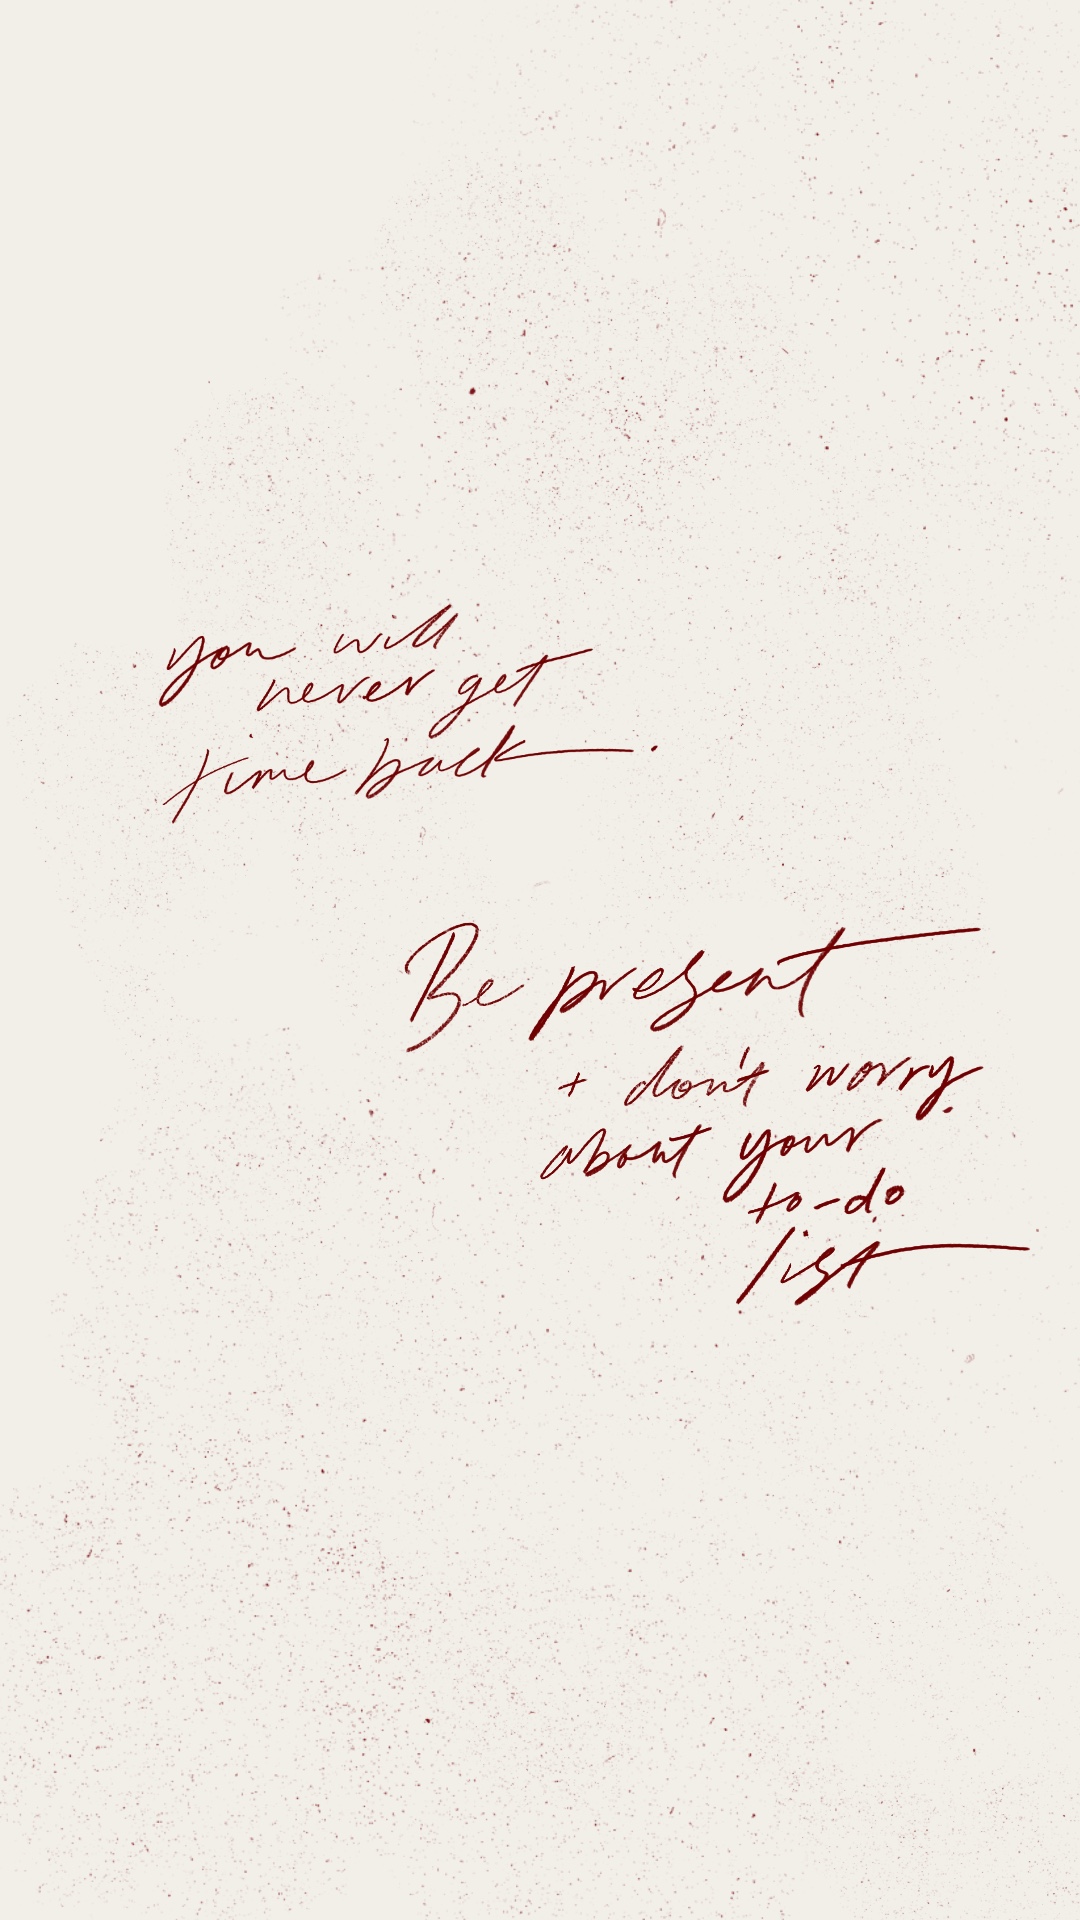 you will
never get
time back.
Be present
+ don't worry
about your
to-do
list